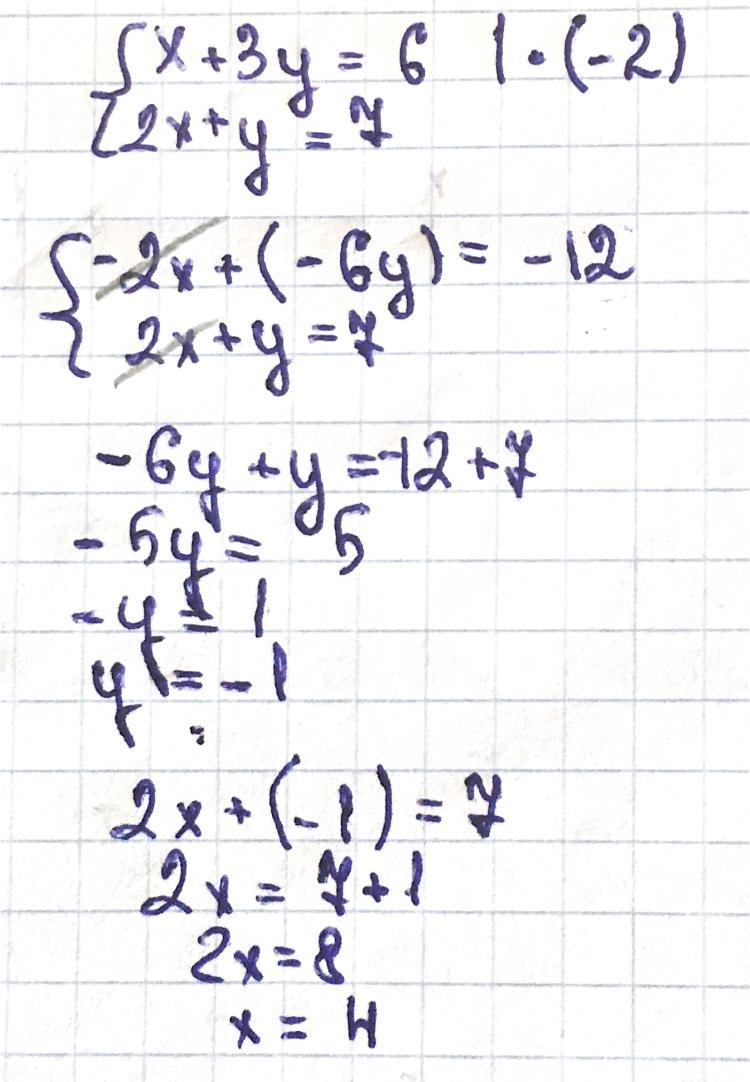 { x + 3y = 6 | · (-2)
{ 2x + y = 7
{ -2x + (-6y) = -12
{ 2x + y = 7
-6y + y = -12 + 7
-5y = 5
-y = 1
y = -1
2x + (-1) = 7
2x = 7 + 1
2x = 8
x = 4